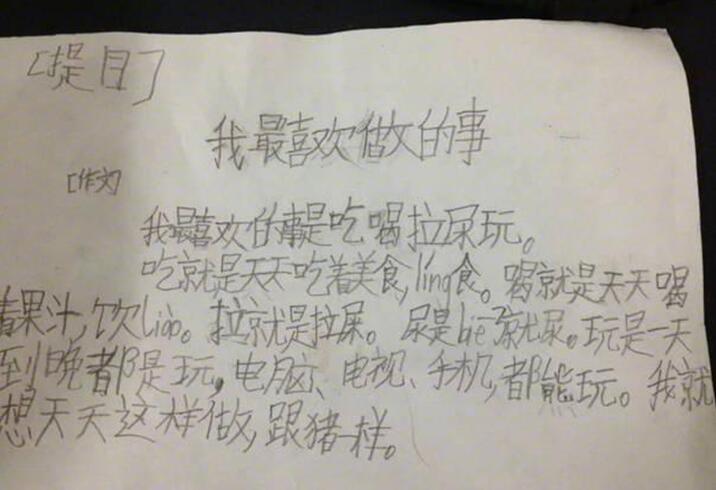 [提目]
我最喜欢做的事
[作文]
我最喜欢的事是吃喝拉尿玩。
吃就是天天吃着美食,ling食。喝就是天天喝
着果汁,饮liao。拉就是拉屎。尿是bie了就尿。玩是一天
到晚都是玩,电脑、电视、手机,都能玩。我就
想天天这样做,跟猪一样。